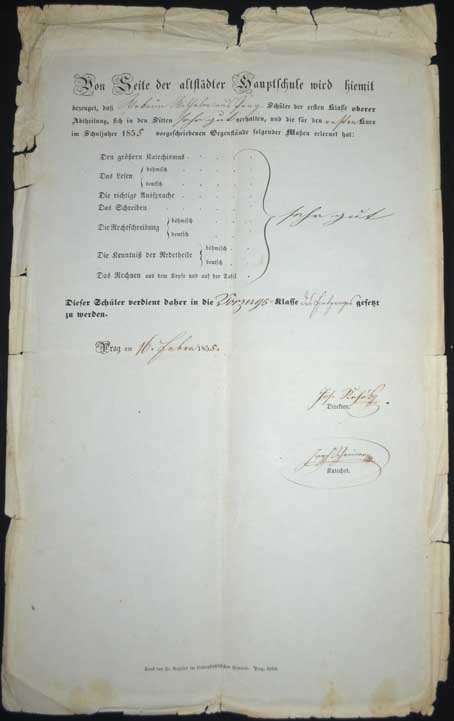 Von Seite der altstädter Hauptschule wird hiemit
bezeuget, daß Wilhelm aus Prag Schüler der ersten Klasse oberer
Abtheilung, sich in den Sitten sehr gut verhalten, und die für den ersten Kurs
im Schuljahre 1855 vorgeschriebenen Gegenstände folgender Maßen erlernet hat:
Den größern Katechismus
Das Lesen { böhmisch
deutsch
Die richtige Aussprache
Das Schreiben
Die Rechtschreibung { böhmisch
deutsch
sehr gut
Die Kenntniß der Redetheile { böhmisch
deutsch
Das Rechnen aus dem Kopfe und auf der Tafel
Dieser Schüler verdient daher in die Vorzugs-Klasse gesetzt
zu werden.
Prag am 16. 1855.
Jos.
Direktor.
Katechet.